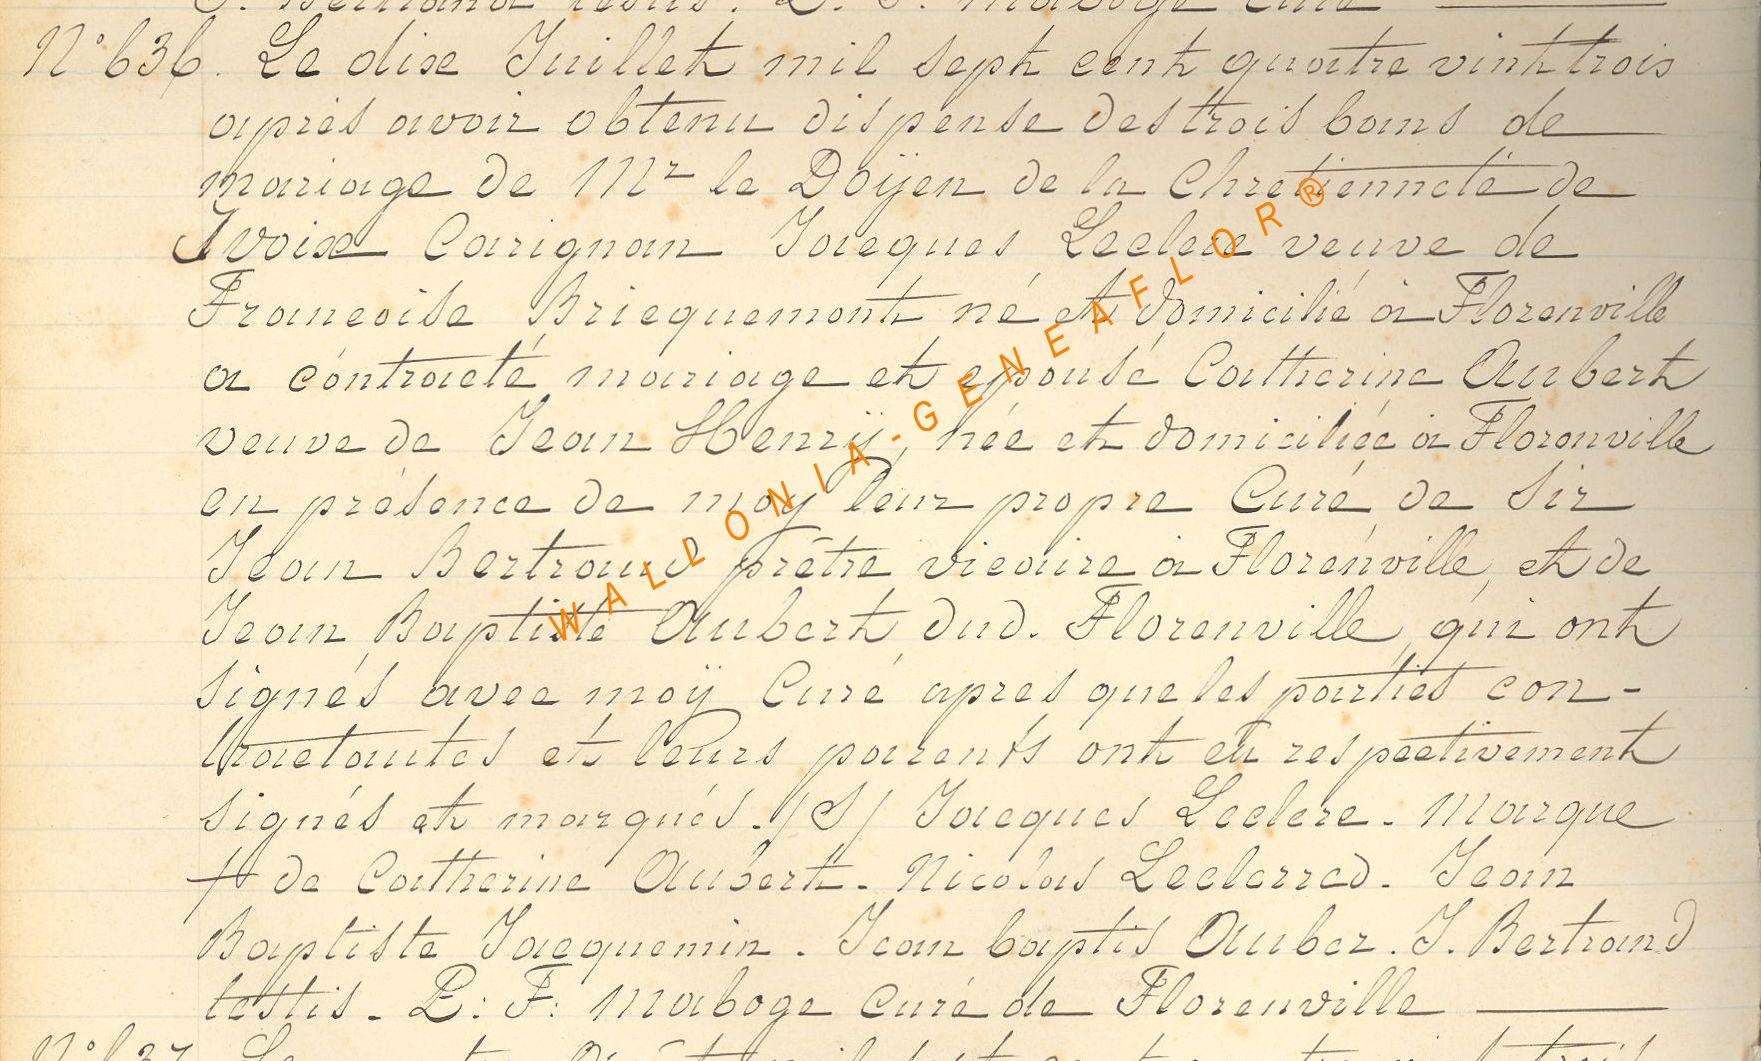 J. Bertrand testis. L. F. Maboge curé
N° 636. Le dixe Juillet mil sept cent quatre vint trois
après avoir obtenu dispense des trois bans de
mariage de Mr le Doÿen de la Chretienneté de
Ivoix Carignan Jacques Leclere veuve de
Francoise Bricquemont né et domicilié à Florenville
a contracté mariage et epousé Catherine Aubert
veuve de Jean Henrÿ, née et domiciliée à Florenville
en présence de moy leur propre Curé de Sir
Jean Bertrand prêtre vicaire à Florenville, et de
Jean Baptiste Aubert dud. Florenville, qui ont
signés avec moÿ Curé apres que les parties con-
tractantes et leurs parents ont eu respectivement
signés et marqués. /S/ Jacques Leclere. Marque
+ de Catherine Aubert. Nicolas Leclerred. Jean
Baptiste Jacquemin. Jean baptis Auber. J. Bertrand
testis. L: F: Maboge curé de Florenville
N° 637
WALLONIA-GENEAFLOR®